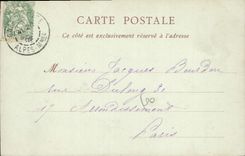 CARTE POSTALE
Ce côté est exclusivement réservé à l'adresse
Monsieur Jacques Bourdon
rue Dulong 30
17 Arrondissement
Paris